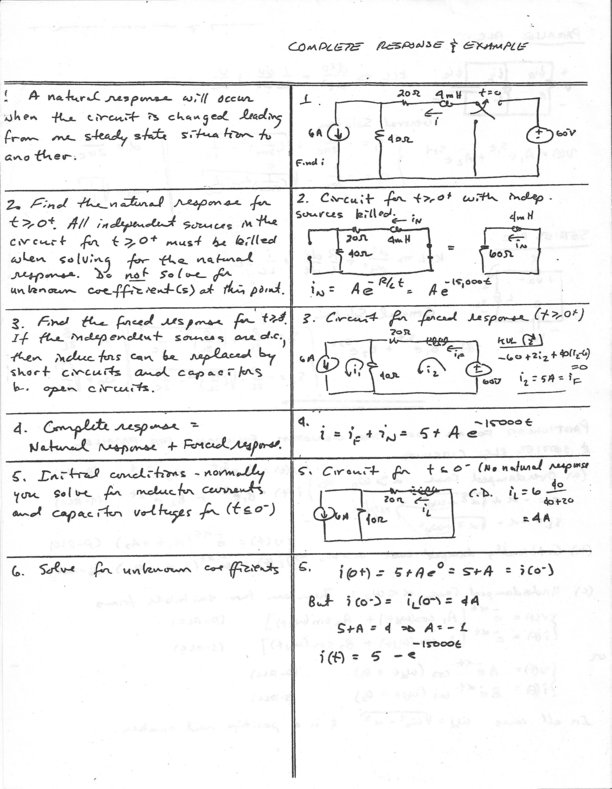 COMPLETE RESPONSE & EXAMPLE
1 A natural response will occur
when the circuit is changed leading
from one steady state situation to
another.
1.
20Ω 4mH t=0
i
6A
40Ω
60V
Find i
2. Find the natural response for
t≥0+. All independent sources in the
circuit for t≥0+ must be killed
when solving for the natural
response. Do not solve for
unknown coefficient(s) at this point.
2. Circuit for t≥0+ with indep.
sources killed.
iN
20Ω 4mH
40Ω
=
4mH
iN
60Ω
iN = Ae^-R/L t = Ae^-15,000t
3. Find the forced response for t≥0+.
If the independent sources are d.c.,
then inductors can be replaced by
short circuits and capacitors
by open circuits.
3. Circuit for forced response (t≥0+)
20Ω
6A
i1
40Ω
i2
iF
60V
KVL
-60+20i2+40(i2-6)
=0
i2 = 5A = iF
4. Complete response =
Natural response + Forced response.
4.
i = iF + iN = 5 + A e^-15000t
5. Initial conditions - normally
you solve for inductor currents
and capacitor voltages for (t≤0-)
5. Circuit for t≤0- (No natural response
20Ω
6A
40Ω
iL
C.D. iL = 6 40/40+20
= 4A
6. Solve for unknown coefficients
6.
i(0+) = 5+Ae^0 = 5+A = i(0-)
But i(0-) = iL(0-) = 4A
5+A = 4 ⇒ A = -1
i(t) = 5 - e^-15000t